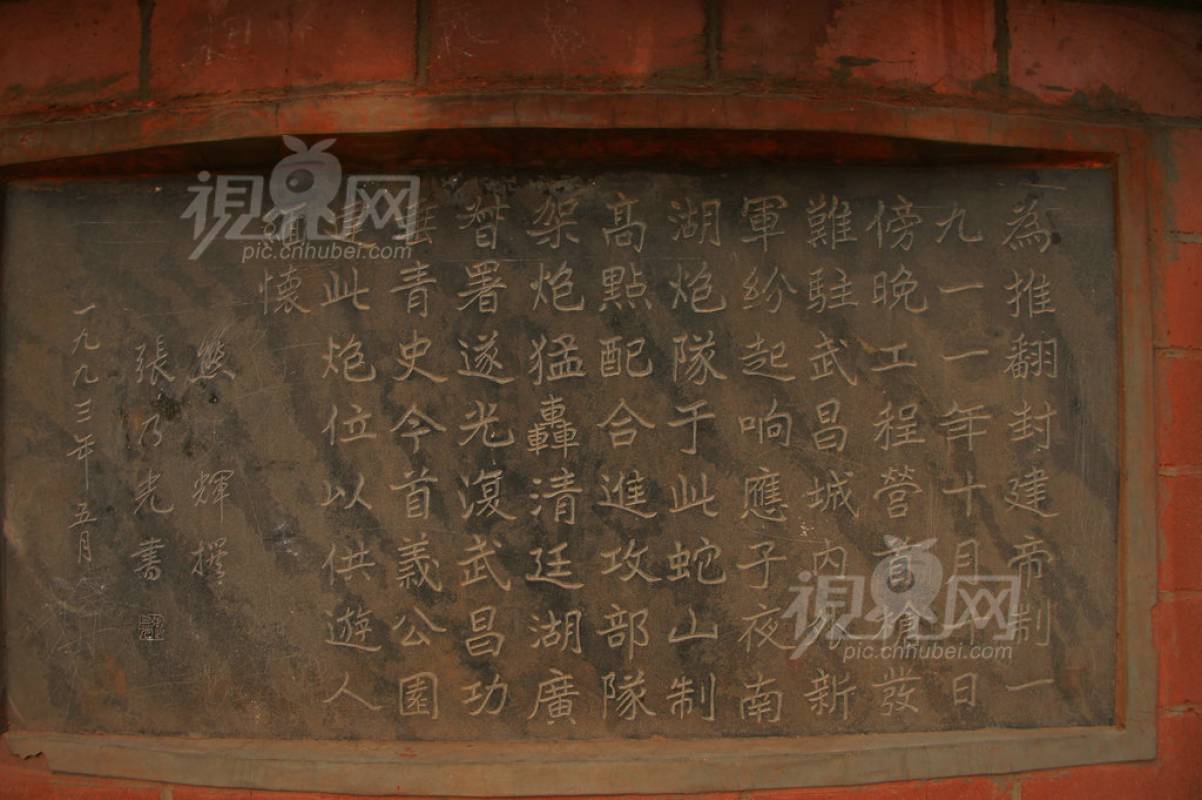 為推翻封建帝制一
九一一年十月十日
傍晚工程營首槍發
難駐武昌城内外新
軍紛起响應子夜南
湖炮隊于此蛇山制
高點配合進攻部隊
架炮猛轟清廷湖廣
督署遂光復武昌功
垂青史今首義公園
建此炮位以供遊人
緬懷
熊輝撰
張乃光書
一九九三年五月
視界网
pic.cnhubei.com
視界网
pic.cnhubei.com